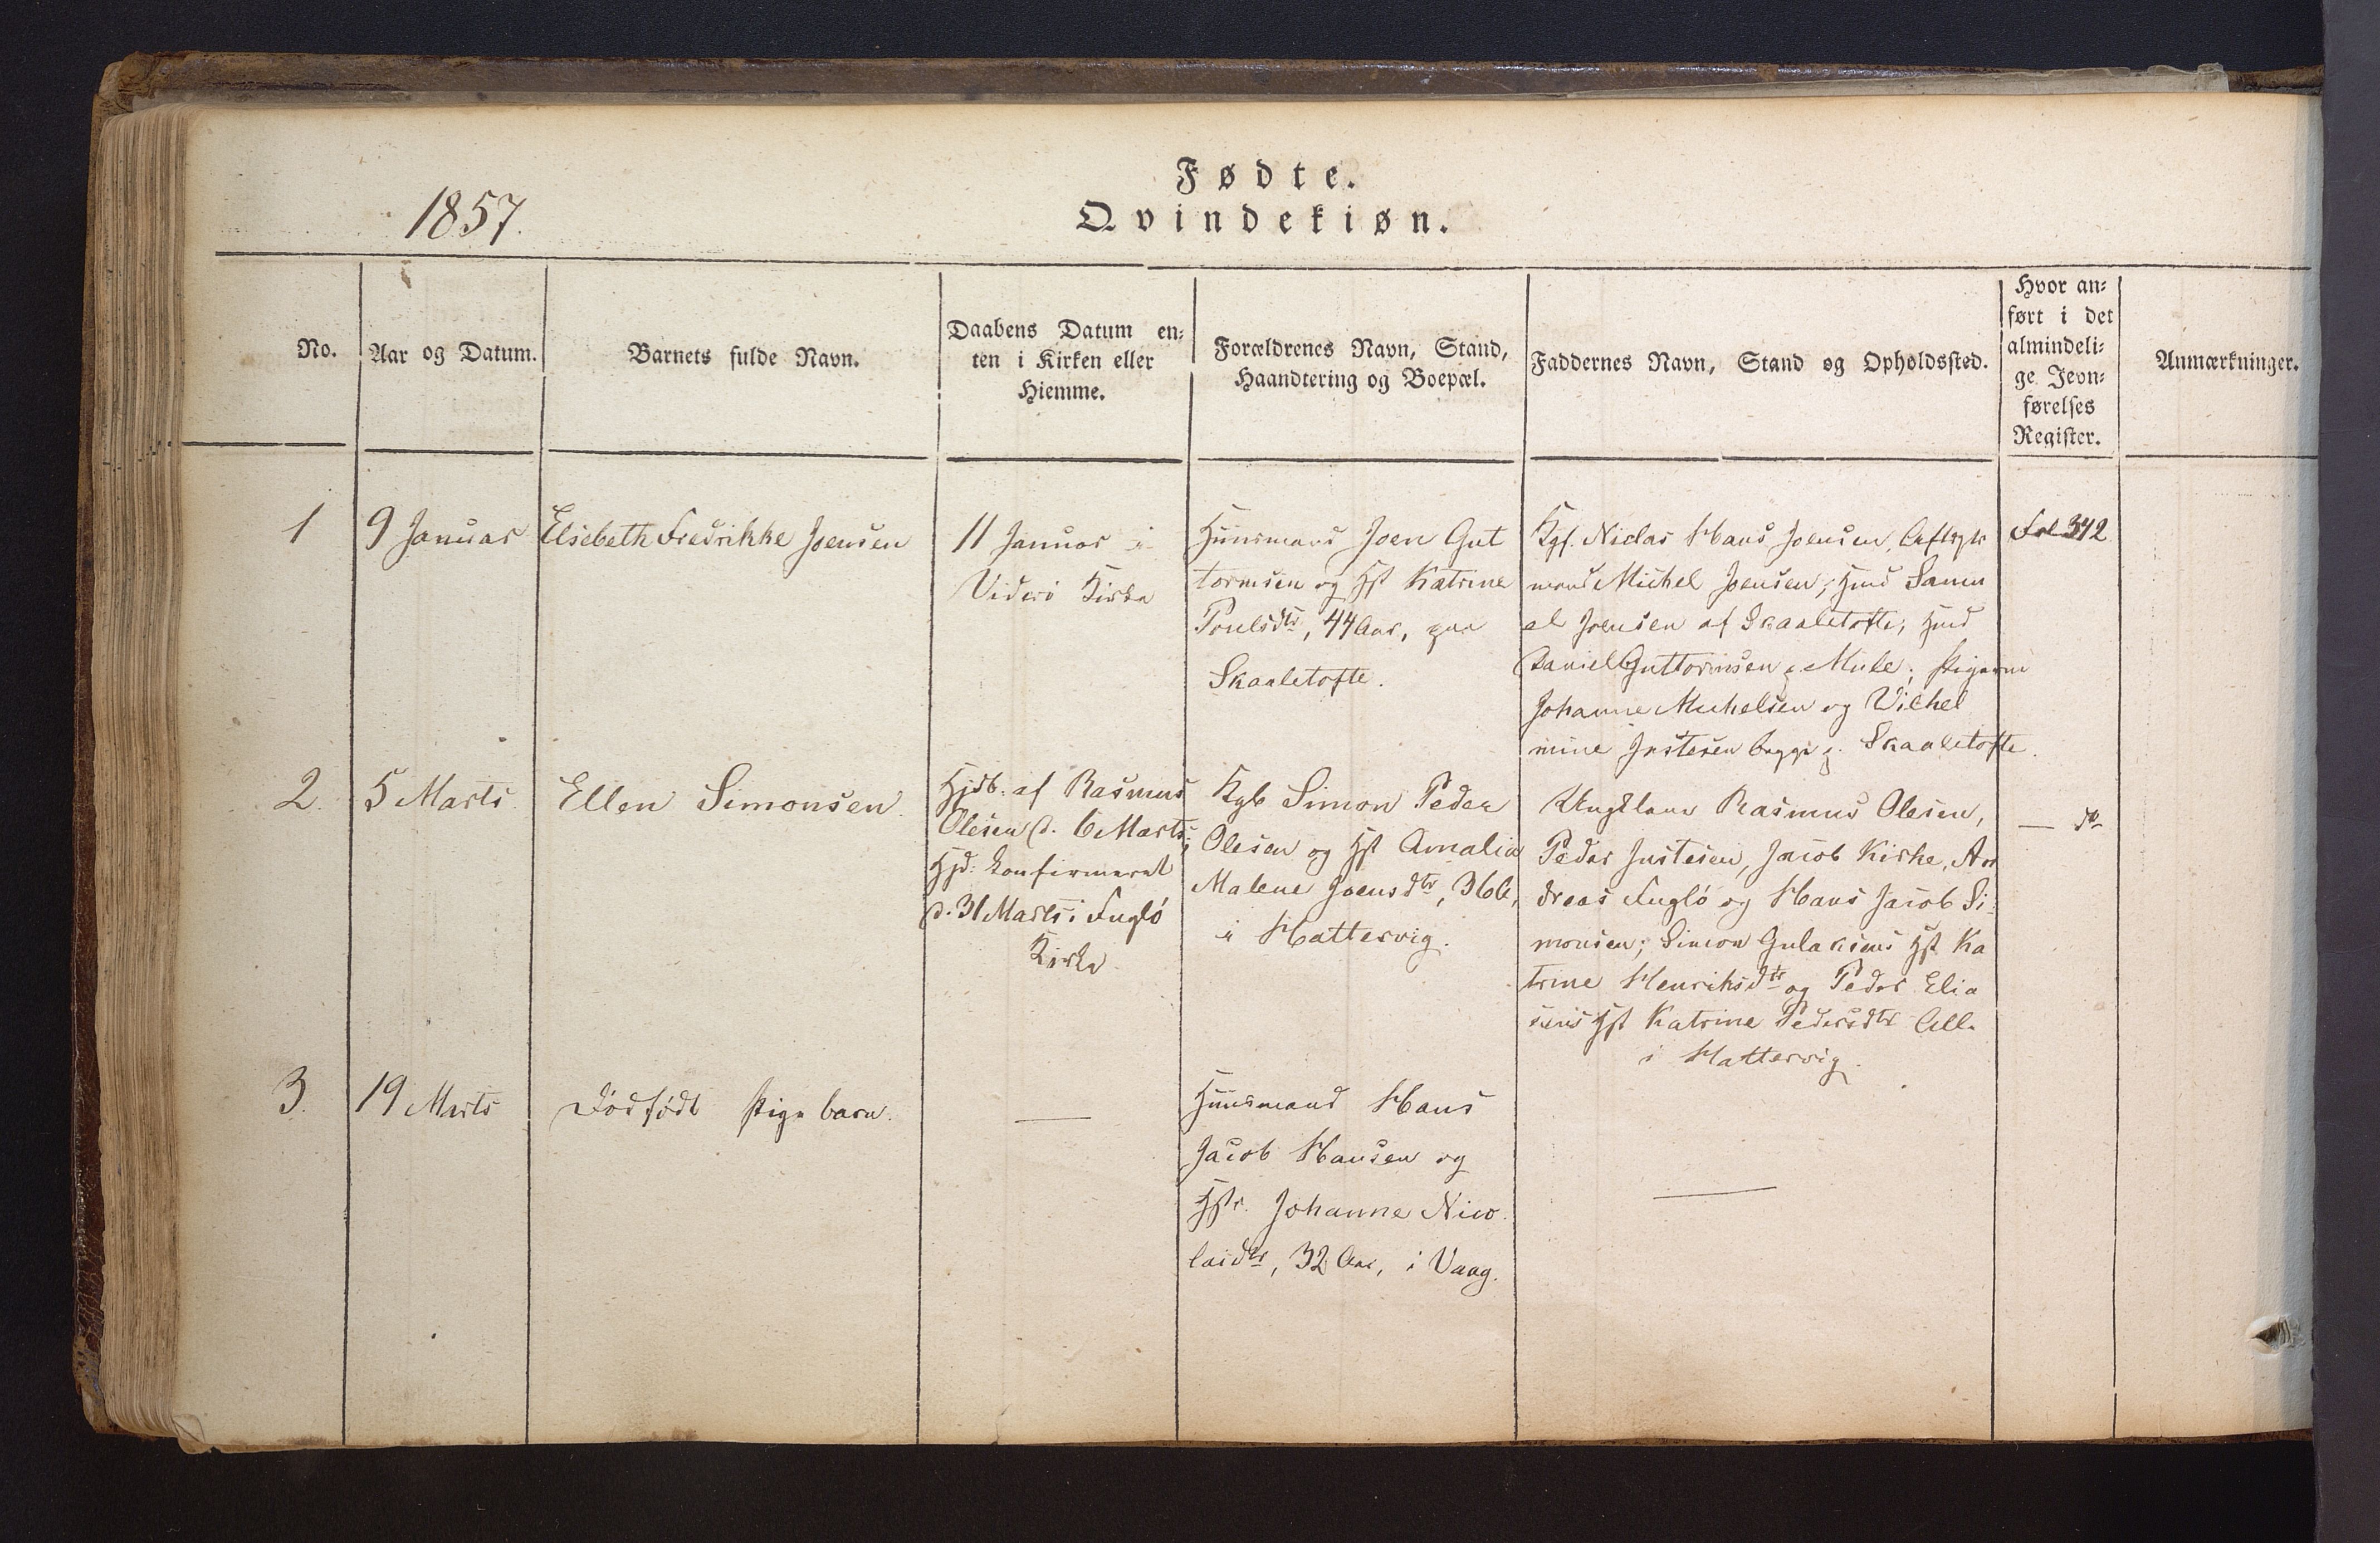 Fødte.
1857.
Qvindekiøn.
No.
Aar og Datum.
Barnets fulde Navn.
Daabens Datum en-
ten i Kirken eller
Hiemme.
Forældrenes Navn, Stand,
Haandtering og Boepæl.
Faddernes Navn, Stand og Opholdssted.
Hvor an-
ført i det
almindeli-
ge Jevn-
førelses
Register.
Anmærkninger.
1
9 Januar
Elsebeth Fredrikke Joensen
11 Januar i
Viderö Kirke
Huusmand Joen Gut
tormsen og Hst Katrine
Poulsdtr, 44 Aar, paa
Skaaletofte.
Kgf. Niclas Hans Joensen, Aftægts
mand Michel Joensen; Hmd Samu
el Joensen af Skaaletofte; Hmd
Daniel Guttormsen Mule; Pigerne
Johanne Michelsen og Vilhel
mine Justesen begge Skaaletofte.
Fol 342
2.
5 Marts.
Ellen Simonsen.
Hjdb. af Rasmus
Olesen d. 6 Marts;
Hjd: konfirmeret
d. 31 Marts i Fuglö
Kirke
Kgb Simon Peder
Olesen og Hst Amalia
Malene Joensdtr, 36 A,
i Hattervig.
Ungklene Rasmus Olesen,
Peder Justesen, Jacob Kirke, An
dreas Fuglö og Hans Jacob Si-
monsen; Simon Gulaksens Hst Ka
trine Henriksdtr og Peder Elia
sens Hst Katrine Pedersdtr Alle
i Hattervig.
— do
3.
19 Marts
Dödfödt Pigebarn.
—
Huusmand Hans
Jacob Hansen og
Hstr. Johanne Nico
laidtr, 32 Aar, i Vaag.
—